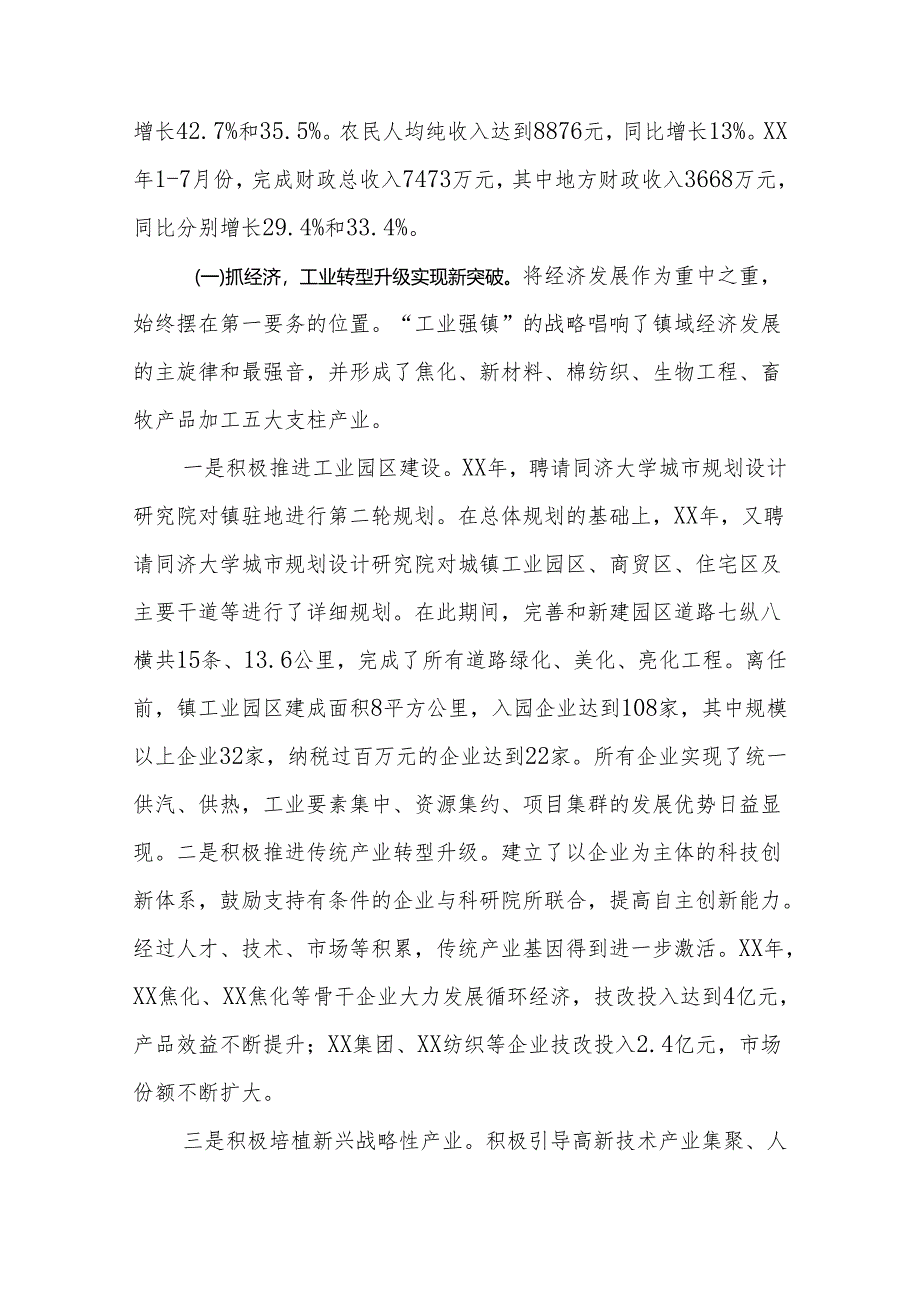 增长42.7%和35.5%。农民人均纯收入达到8876元，同比增长13%。XX
年1-7月份，完成财政总收入7473万元，其中地方财政收入3668万元，
同比分别增长29.4%和33.4%。
(一)抓经济，工业转型升级实现新突破。将经济发展作为重中之重，
始终摆在第一要务的位置。“工业强镇”的战略唱响了镇域经济发展
的主旋律和最强音，并形成了焦化、新材料、棉纺织、生物工程、畜
牧产品加工五大支柱产业。
一是积极推进工业园区建设。XX年，聘请同济大学城市规划设计
研究院对镇驻地进行第二轮规划。在总体规划的基础上，XX年，又聘
请同济大学城市规划设计研究院对城镇工业园区、商贸区、住宅区及
主要干道等进行了详细规划。在此期间，完善和新建园区道路七纵八
横共15条、13.6公里，完成了所有道路绿化、美化、亮化工程。离任
前，镇工业园区建成面积8平方公里，入园企业达到108家，其中规模
以上企业32家，纳税过百万元的企业达到22家。所有企业实现了统一
供汽、供热，工业要素集中、资源集约、项目集群的发展优势日益显
现。二是积极推进传统产业转型升级。建立了以企业为主体的科技创
新体系，鼓励支持有条件的企业与科研院所联合，提高自主创新能力。
经过人才、技术、市场等积累，传统产业基因得到进一步激活。XX年，
XX焦化、XX焦化等骨干企业大力发展循环经济，技改投入达到4亿元，
产品效益不断提升；XX集团、XX纺织等企业技改投入2.4亿元，市场
份额不断扩大。
三是积极培植新兴战略性产业。积极引导高新技术产业集聚、人